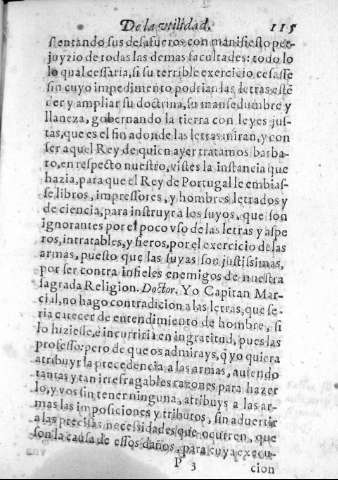 De la vtilidad. 115
sientando sus desafueros con manifiesto per-
juyzio de todas las demas facultades: todo lo
lo qual cessaria, si su terrible exercicio cesasse
sin cuyo impedimento podrian las letras estē
der y ampliar su doctrina, su mansedumbre y
llaneza, gobernando la tierra con leyes jus-
tas, que es el fin a donde las letras miran, y con
ser aquel Rey de quien ayer tratamos barba-
ro, en respecto nuestro, vistes la instancia que
hazia, para que el Rey de Portugal le embias-
se libros, impressores, y hombres letrados y
de ciencia, para instruyr a los suyos, que son
ignorantes por el poco vso de las letras y aspe
ros, intratables, y fieros, por el exercicio de las
armas, puesto que las suyas son justissimas,
por ser contra infieles enemigos de nuestra
sagrada Religion. Doctor. Yo Capitan Mar-
cial, no hago contradicion a las letras, que se-
ria carecer de entendimiento de hombre, si
lo hiziesse, e incurriria en ingratitud, pues las
professo: pero de que os admirays, q̄ yo quiera
atribuyr la precedencia a las armas, auiendo
tantas y tan irrefragables razones para hazer
lo, y vos sin tener ninguna, atribuys a las ar-
mas las imposiciones y tributos, sin aduertir
a las precisas necessidades que ocurren, que
son la causa de essos daños, para cuya execu-
P 3 cion